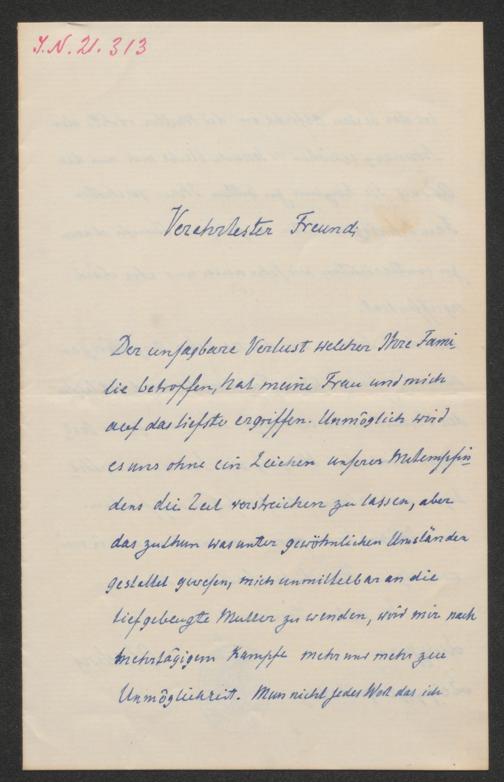 J.N. 21.313
Verehrtester Freund,
Der unsagbare Verlust welcher Ihre Fami-
lie betroffen, hat meine Frau und mich
auf das tiefste ergriffen. Unmöglich wird
es uns ohne ein Zeichen unseres Mitempfin-
dens die Zeit verstreichen zu lassen, aber
das zu thun was unter gewöhnlichen Umständen
gestattet gewesen, mich unmittelbar an die
tiefgebeugte Mutter zu wenden, wird mir nach
mehrtägigem Kampfe mehr und mehr zur
Unmöglichkeit. Muss nicht jedes Wort das ich